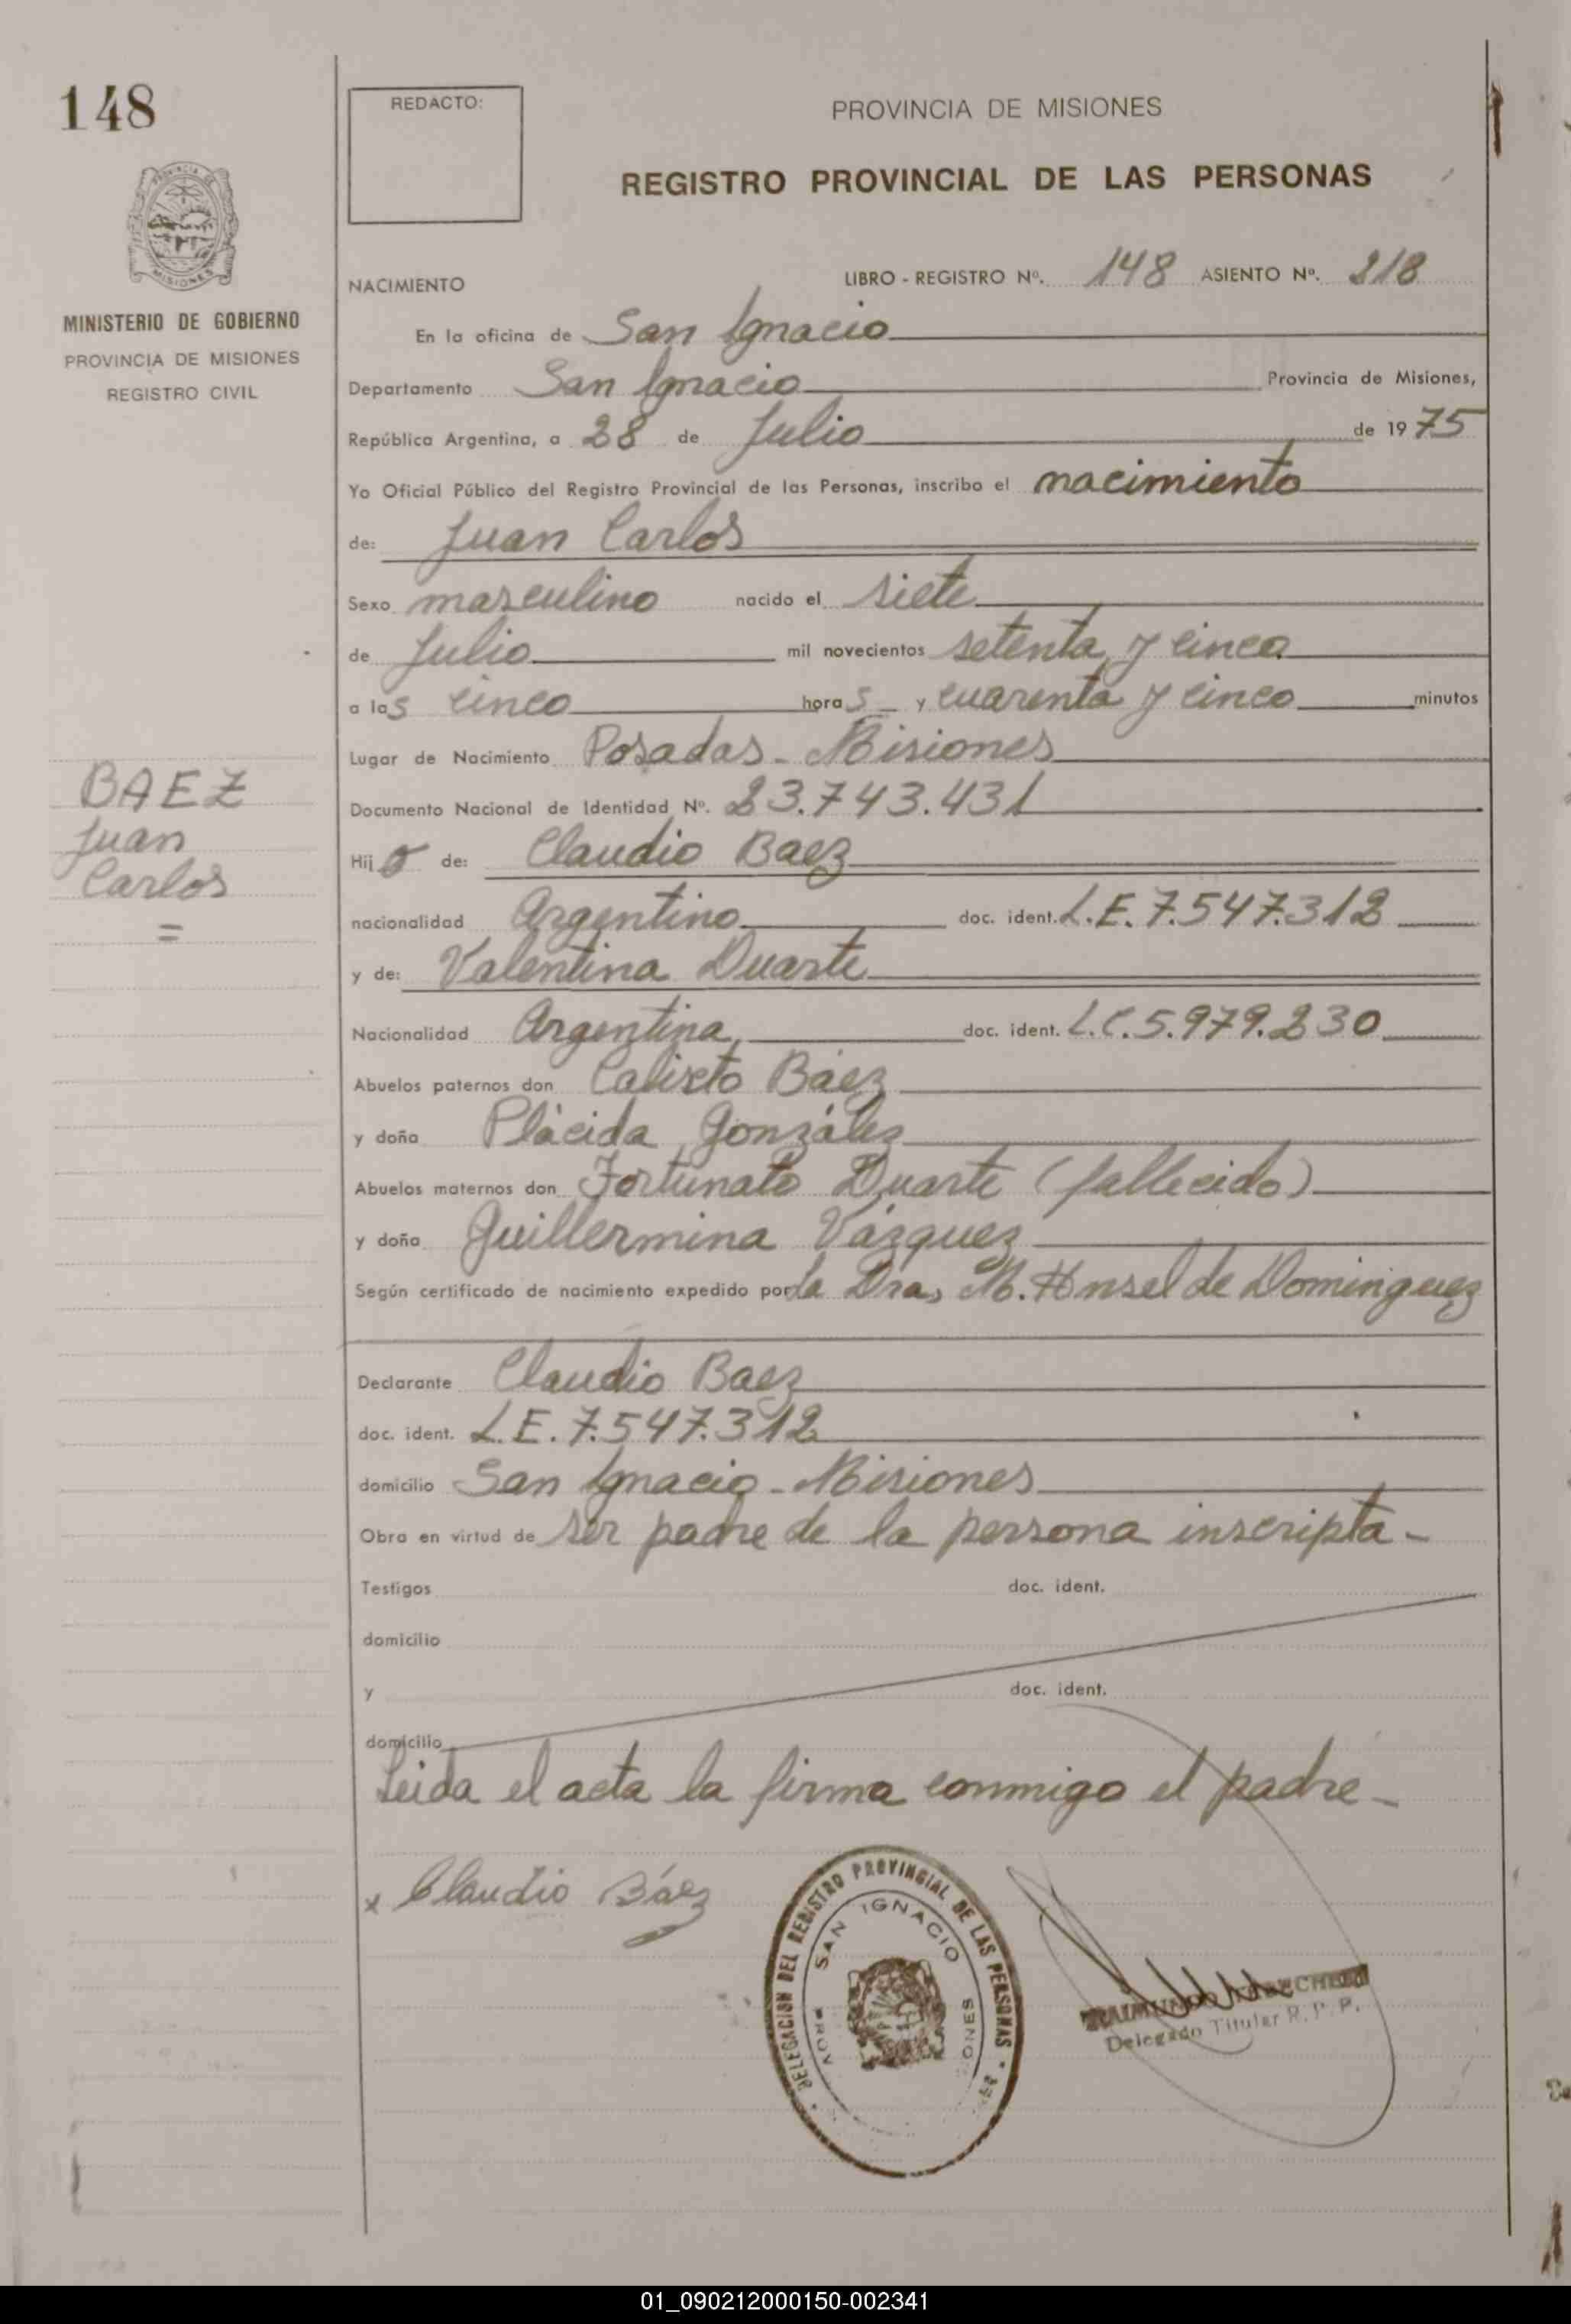 148
REDACTO:
PROVINCIA DE MISIONES
REGISTRO PROVINCIAL DE LAS PERSONAS
MISIONES
MINISTERIO DE GOBIERNO
PROVINCIA DE MISIONES
REGISTRO CIVIL
NACIMIENTO LIBRO - REGISTRO Nº. 148 ASIENTO Nº. 218
En la oficina de San Ignacio
Departamento San Ignacio Provincia de Misiones,
República Argentina, a 28 de Julio de 1975
Yo Oficial Público del Registro Provincial de las Personas, inscribo el nacimiento
de: Juan Carlos
Sexo masculino nacido el siete
de Julio mil novecientos setenta y cinco
a las cinco horas y cuarenta y cinco minutos
Lugar de Nacimiento Posadas - Misiones
Documento Nacional de Identidad Nº. 23.743.431
BAEZ
Juan
Carlos
=
Hijo de: Claudio Baez
nacionalidad Argentino doc. ident. L.E. 7.547.312
y de: Valentina Duarte
Nacionalidad Argentina doc. ident. L.C. 5.979.230
Abuelos paternos don Calixto Báez
y doña Plácida González
Abuelos maternos don Fortunato Duarte (fallecido)
y doña Guillermina Vázquez
Según certificado de nacimiento expedido por la Dra, M. de Dominguez
Declarante Claudio Baez
doc. ident. L.E. 7.547.312
domicilio San Ignacio - Misiones
Obra en virtud de ser padre de la persona inscripta -
Testigos doc. ident.
domicilio
y doc. ident.
domicilio
Leida el acta la firma conmigo el padre -
x Claudio Báez
DELEGACION DEL REGISTRO PROVINCIAL DE LAS PERSONAS
SAN IGNACIO
Delegado Titular R. P. P.
01_090212000150-002341